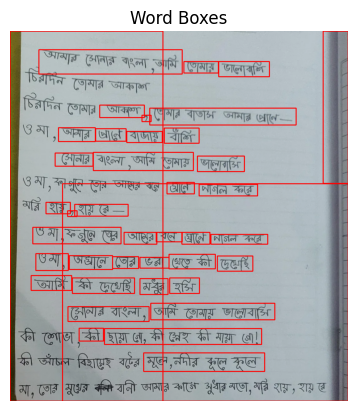 Word Boxes
আমার সোনার বাংলা, আমি তোমায় ভালোবাসি
চিরদিন তোমার আকাশ
চিরদিন তোমার আকাশ, তোমার বাতাস আমার প্রাণে—
ও মা, আমার প্রাণে বাজায় বাঁশি
সোনার বাংলা, আমি তোমায় ভালোবাসি
ও মা, ফাগুনে তোর আমের বনে ঘ্রাণে পাগল করে
মরি হায়, হায় রে—
ও মা, ফাগুনে তোর আমের বনে ঘ্রাণে পাগল করে
ও মা, অঘ্রানে তোর ভরা খেতে কী দেখেছি
আমি কী দেখেছি মধুর হাসি
সোনার বাংলা, আমি তোমায় ভালোবাসি
কী শোভা, কী ছায়া গো, কী স্নেহ কী মায়া গো!
কী আঁচল বিছায়েছ বটের মূলে, নদীর কূলে কূলে
মা, তোর মুখের বাণী আমার কানে সুধার মতো, মরি হায়, হায় রে